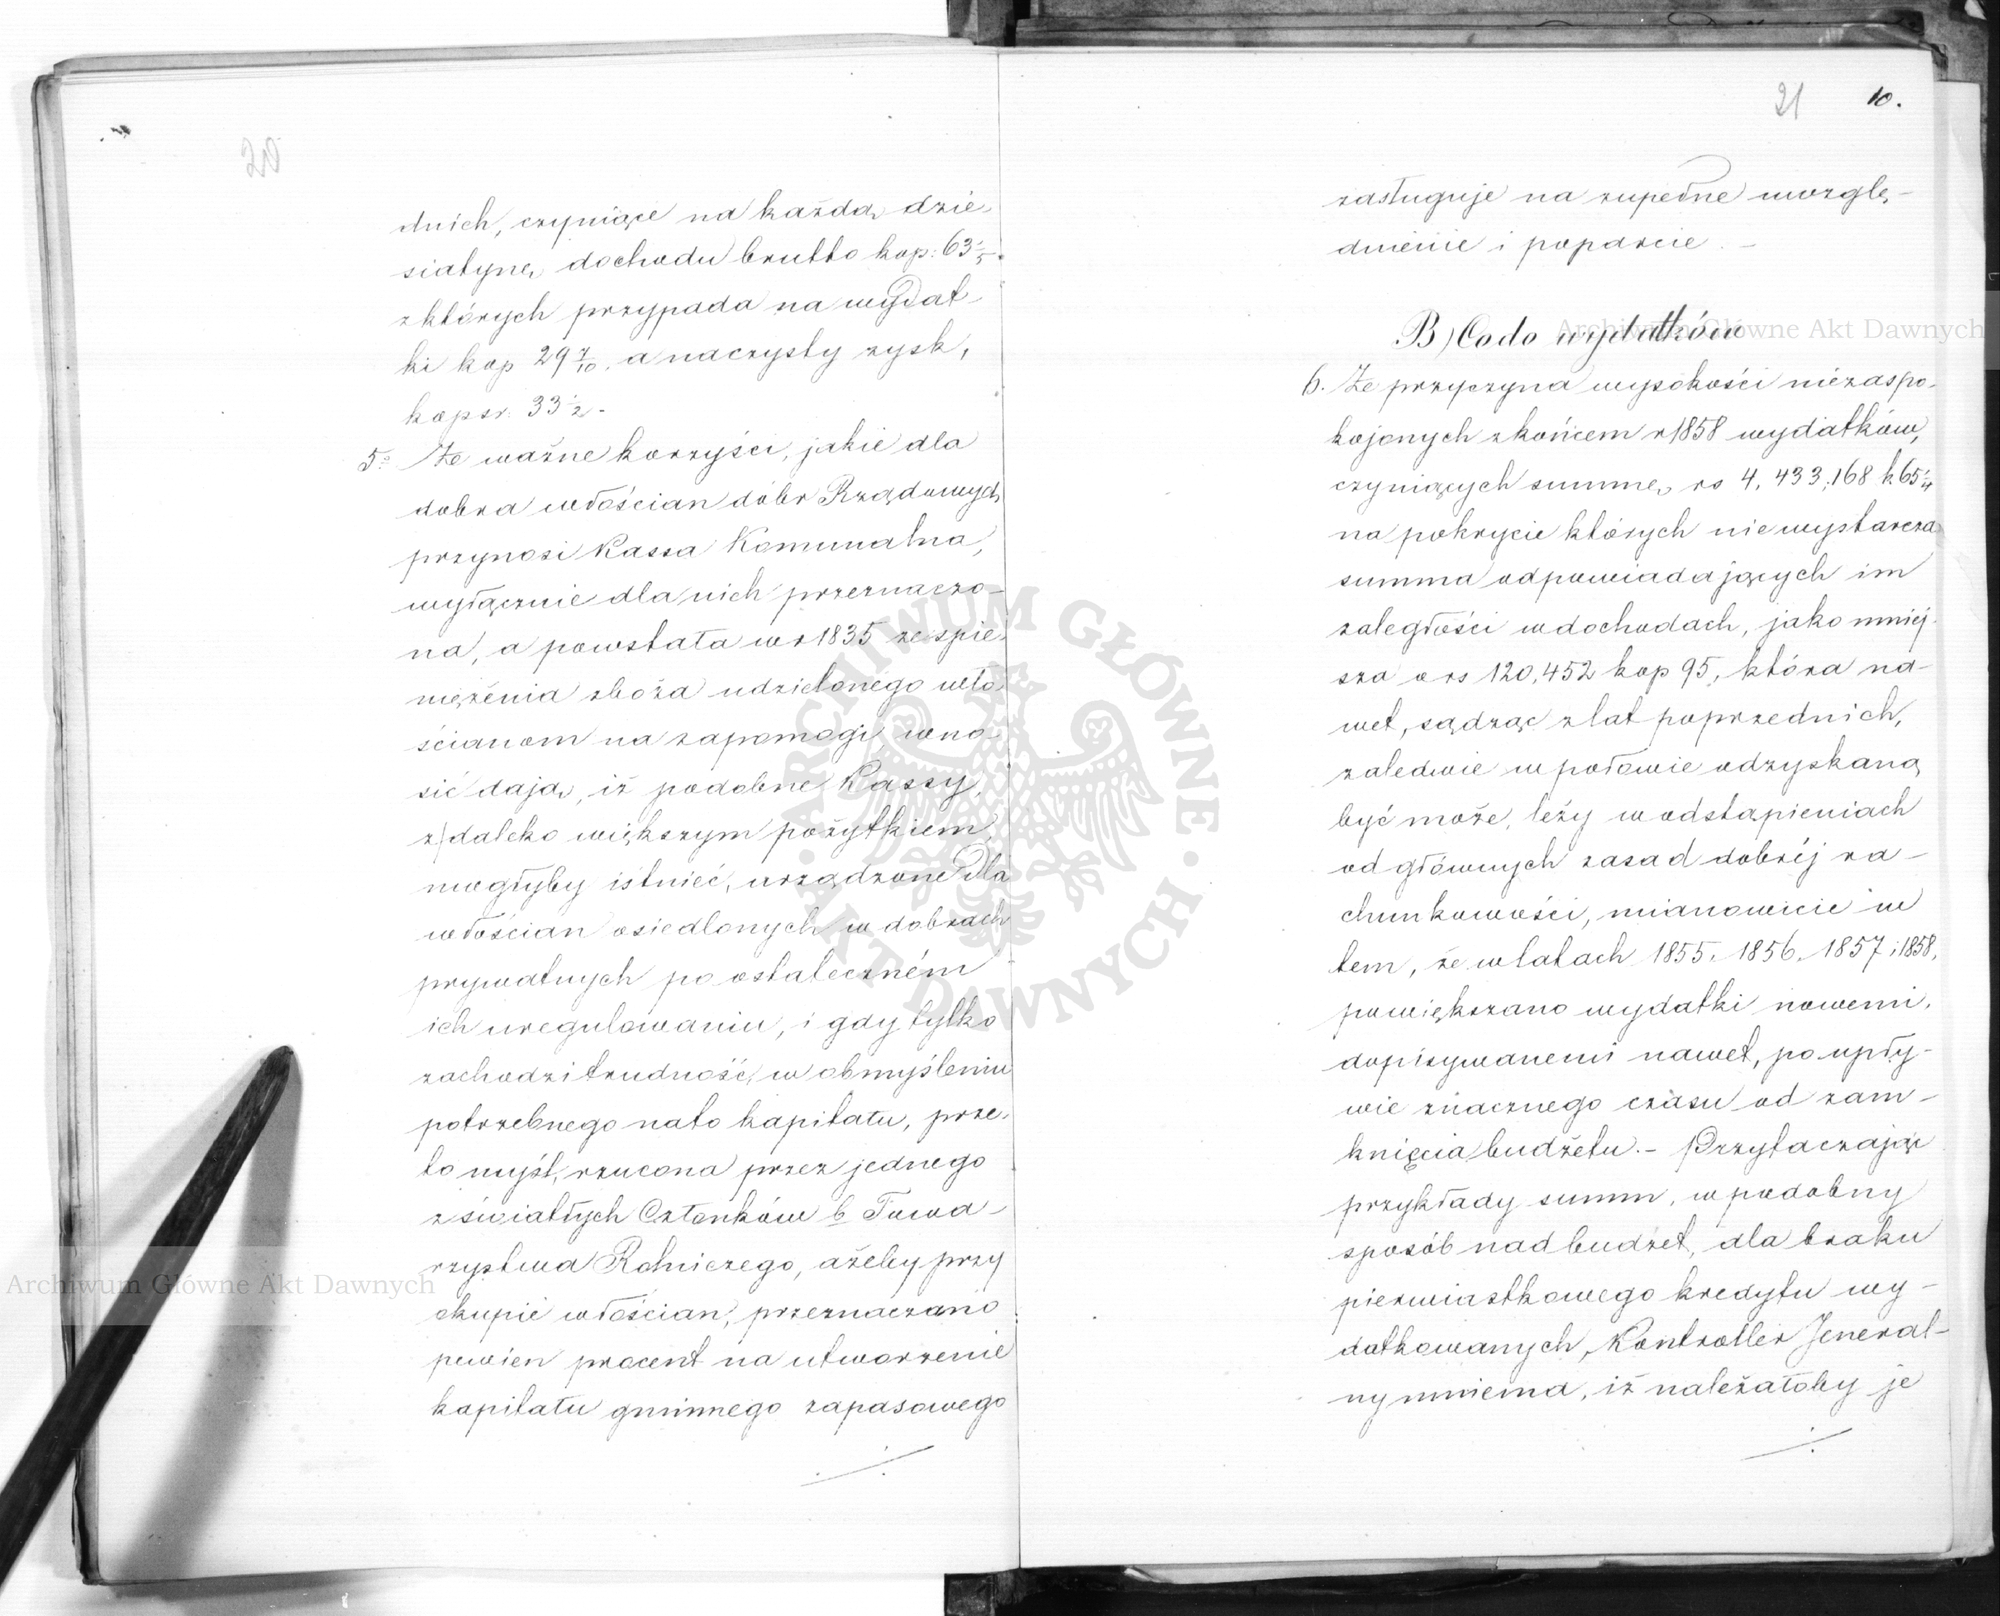 20
dnich, czyniące na każdą dzie-
siatynę, dochodu brutto kop: 63 1/5.
z których przypada na wydat-
ki kop 29 7/10, a na czysty zysk,
kop sr. 33 1/2.
5o Że ważne korzyści, jakie dla
dobra włościan dóbr Rządowych
przynosi Kassa Komunalna,
wyłącznie dla nich przeznaczo-
na, a powstała w r 1835 ze spie-
niężenia zboża udzielonego wło-
ścianom na zapomogi, wno-
sić dają, iż podobne Kassy,
z daleko większym pożytkiem
mogłyby istnieć, urządzone dla
włościan osiedlonych w dobrach
prywatnych po ostateczném
ich uregulowaniu, i gdy tylko
zachodzi trudność, w obmyśleniu
potrzebnego na to kapitału, prze-
to myśl, rzucona przez jednego
z światłych Członków b Towa-
rzystwa Rolniczego, ażeby przy
okupie włościan, przeznaczono
pewien procent na utworzenie
kapitału gminnego zapasowego
21 10.
zasługuje na zupełne uwzglę-
dnienie i poparcie. -
B) Co do wydatków
6. Że przyczyna wysokości niezaspo-
kojonych z końcem r 1858 wydatków,
czyniących summę, rs 4,433,168 k 65 1/4
na pokrycie których nie wystarcza
summa odpowiadających im
zaległości w dochodach, jako mniej-
sza o rs 120,452 kop 95, która na-
wet, sądząc z lat poprzednich,
zaledwie w połowie odzyskaną
być może, leży w odstąpieniach
od głównych zasad dobréj ra-
chunkowości, mianowicie w
tem, że w latach 1855. 1856. 1857 i 1858,
powiększano wydatki nowemi,
dopisywanemi nawet, po upły-
wie znacznego czasu od zam-
knięcia budżetu. - Przytaczając
przykłady summ, w podobny
sposób nad budżet, dla braku
pierwiastkowego kredytu wy-
datkowanych, Kontroller Jeneral-
ny mniema, iż należałoby je
Archiwum Główne Akt Dawnych
Archiwum Główne Akt Dawnych
ARCHIWUM GŁÓWNE
AKT DAWNYCH